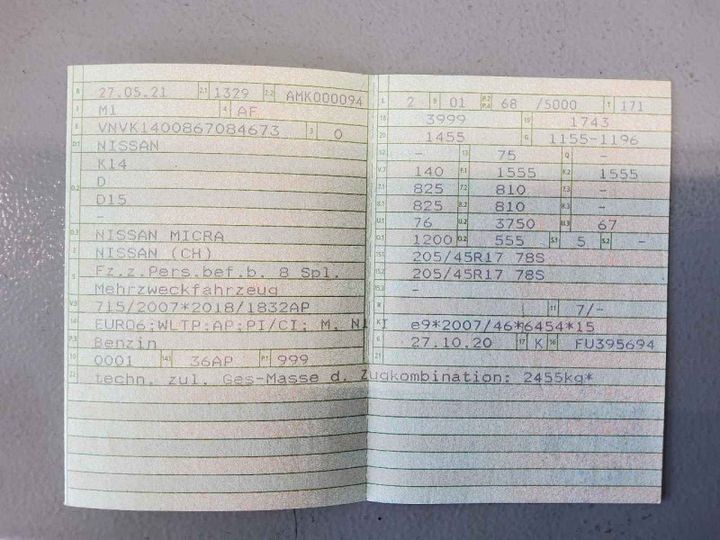 B 27.05.21 2.1 1329 2.2 AMK000094
J M1 4 AF
E VNVK1400867084673 3 0
D.1 NISSAN
K14
D.2 D
D15
-
D.3 NISSAN MICRA
2 NISSAN (CH)
5 Fz.z.Pers.bef.b. 8 Spl.
Mehrzweckfahrzeug
V.9 715/2007*2018/1832AP
14 EURO6;WLTP:AP:PI/CI; M, N1 I
P.3 Benzin
10 0001 14.1 36AP P.1 999
22 techn. zul. Ges-Masse d. Zugkombination: 2455kg*
L 2 9 01 P.2 P.4 68 /5000 T 171
18 3999 19 1743
20 1455 G 1155-1196
12 - 13 75 Q -
V.7 140 F.1 1555 F.2 1555
7.1 825 7.2 810 7.3 -
8.1 825 8.2 810 8.3 -
U.1 76 U.2 3750 U.3 67
O.1 1200 O.2 555 S.1 5 S.2 -
15.1 205/45R17 78S
15.2 205/45R17 78S
15.3 -
R 11 7/-
K e9*2007/46*6454*15
6 27.10.20 17 K 16 FU395694
21